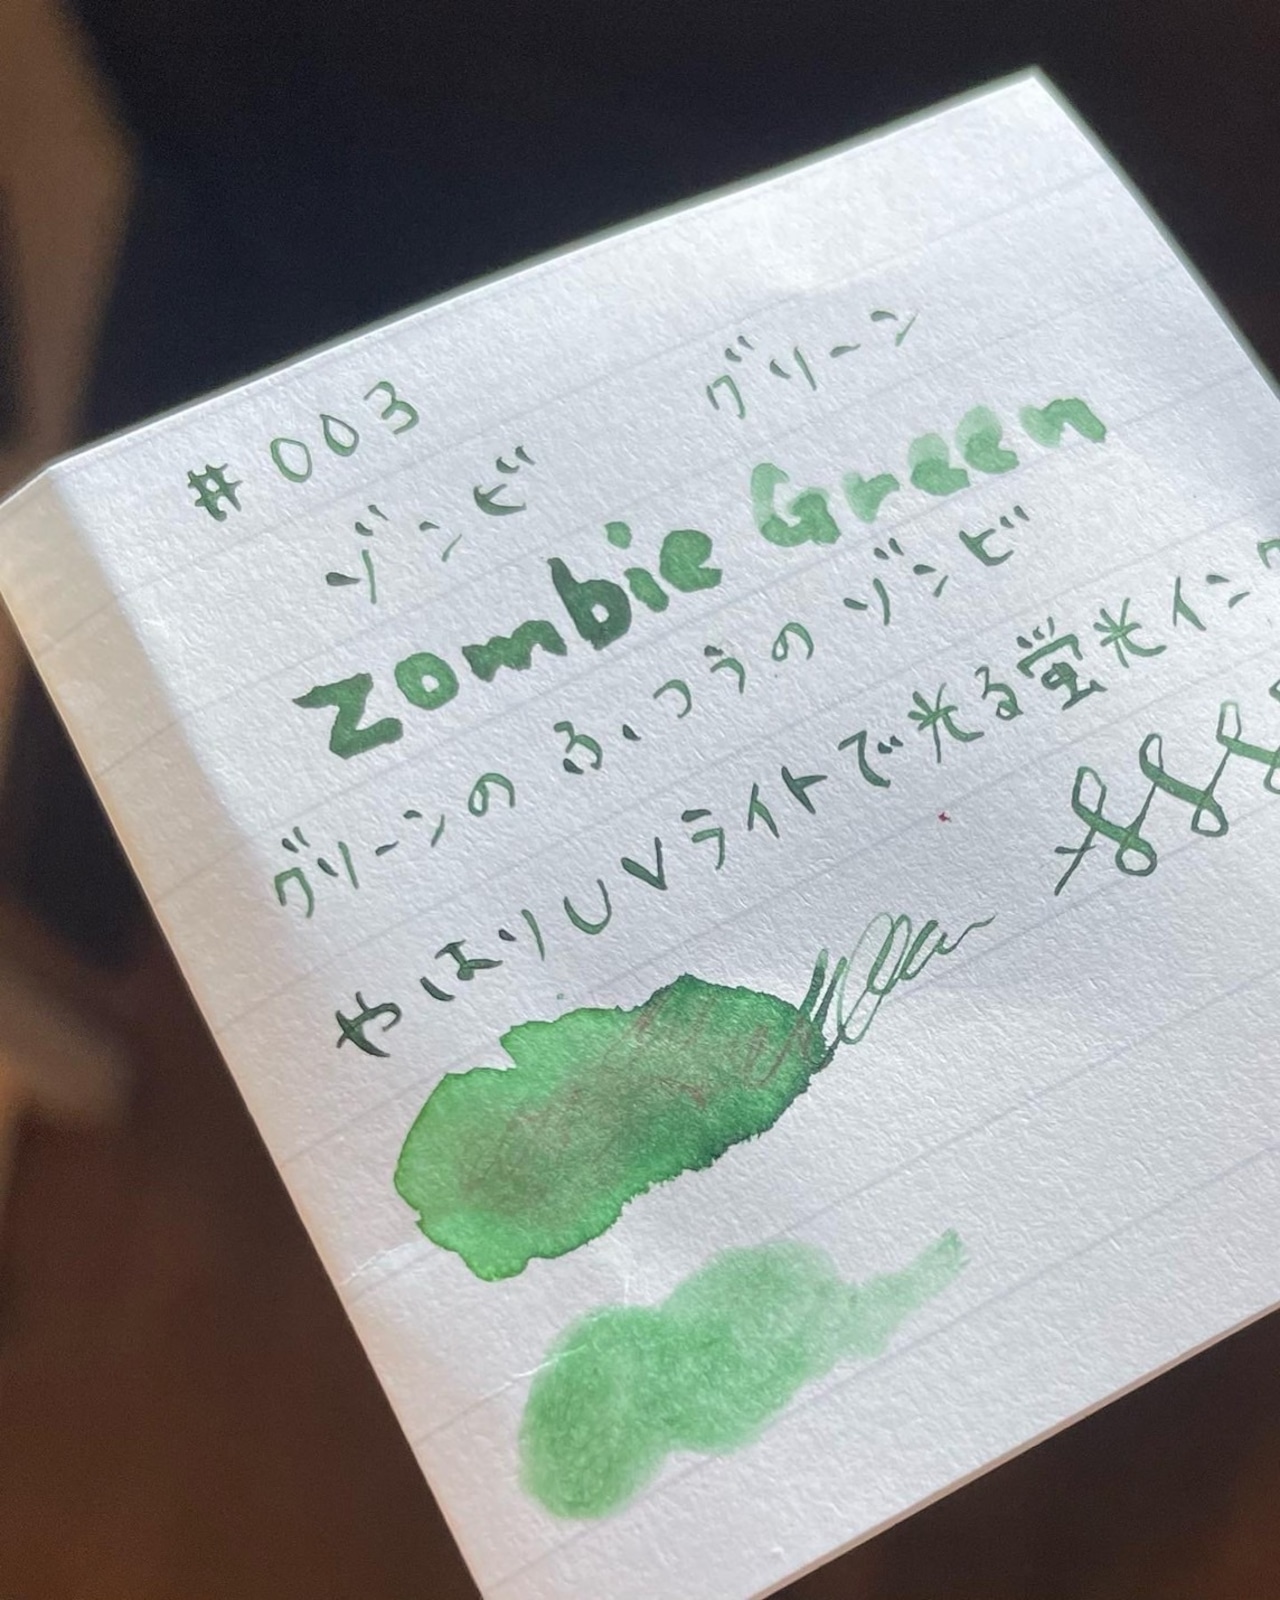 #003
ゾンビ グリーン
Zombie Green
グリーンのふつうのゾンビ
やはりUVライトで光る蛍光インク